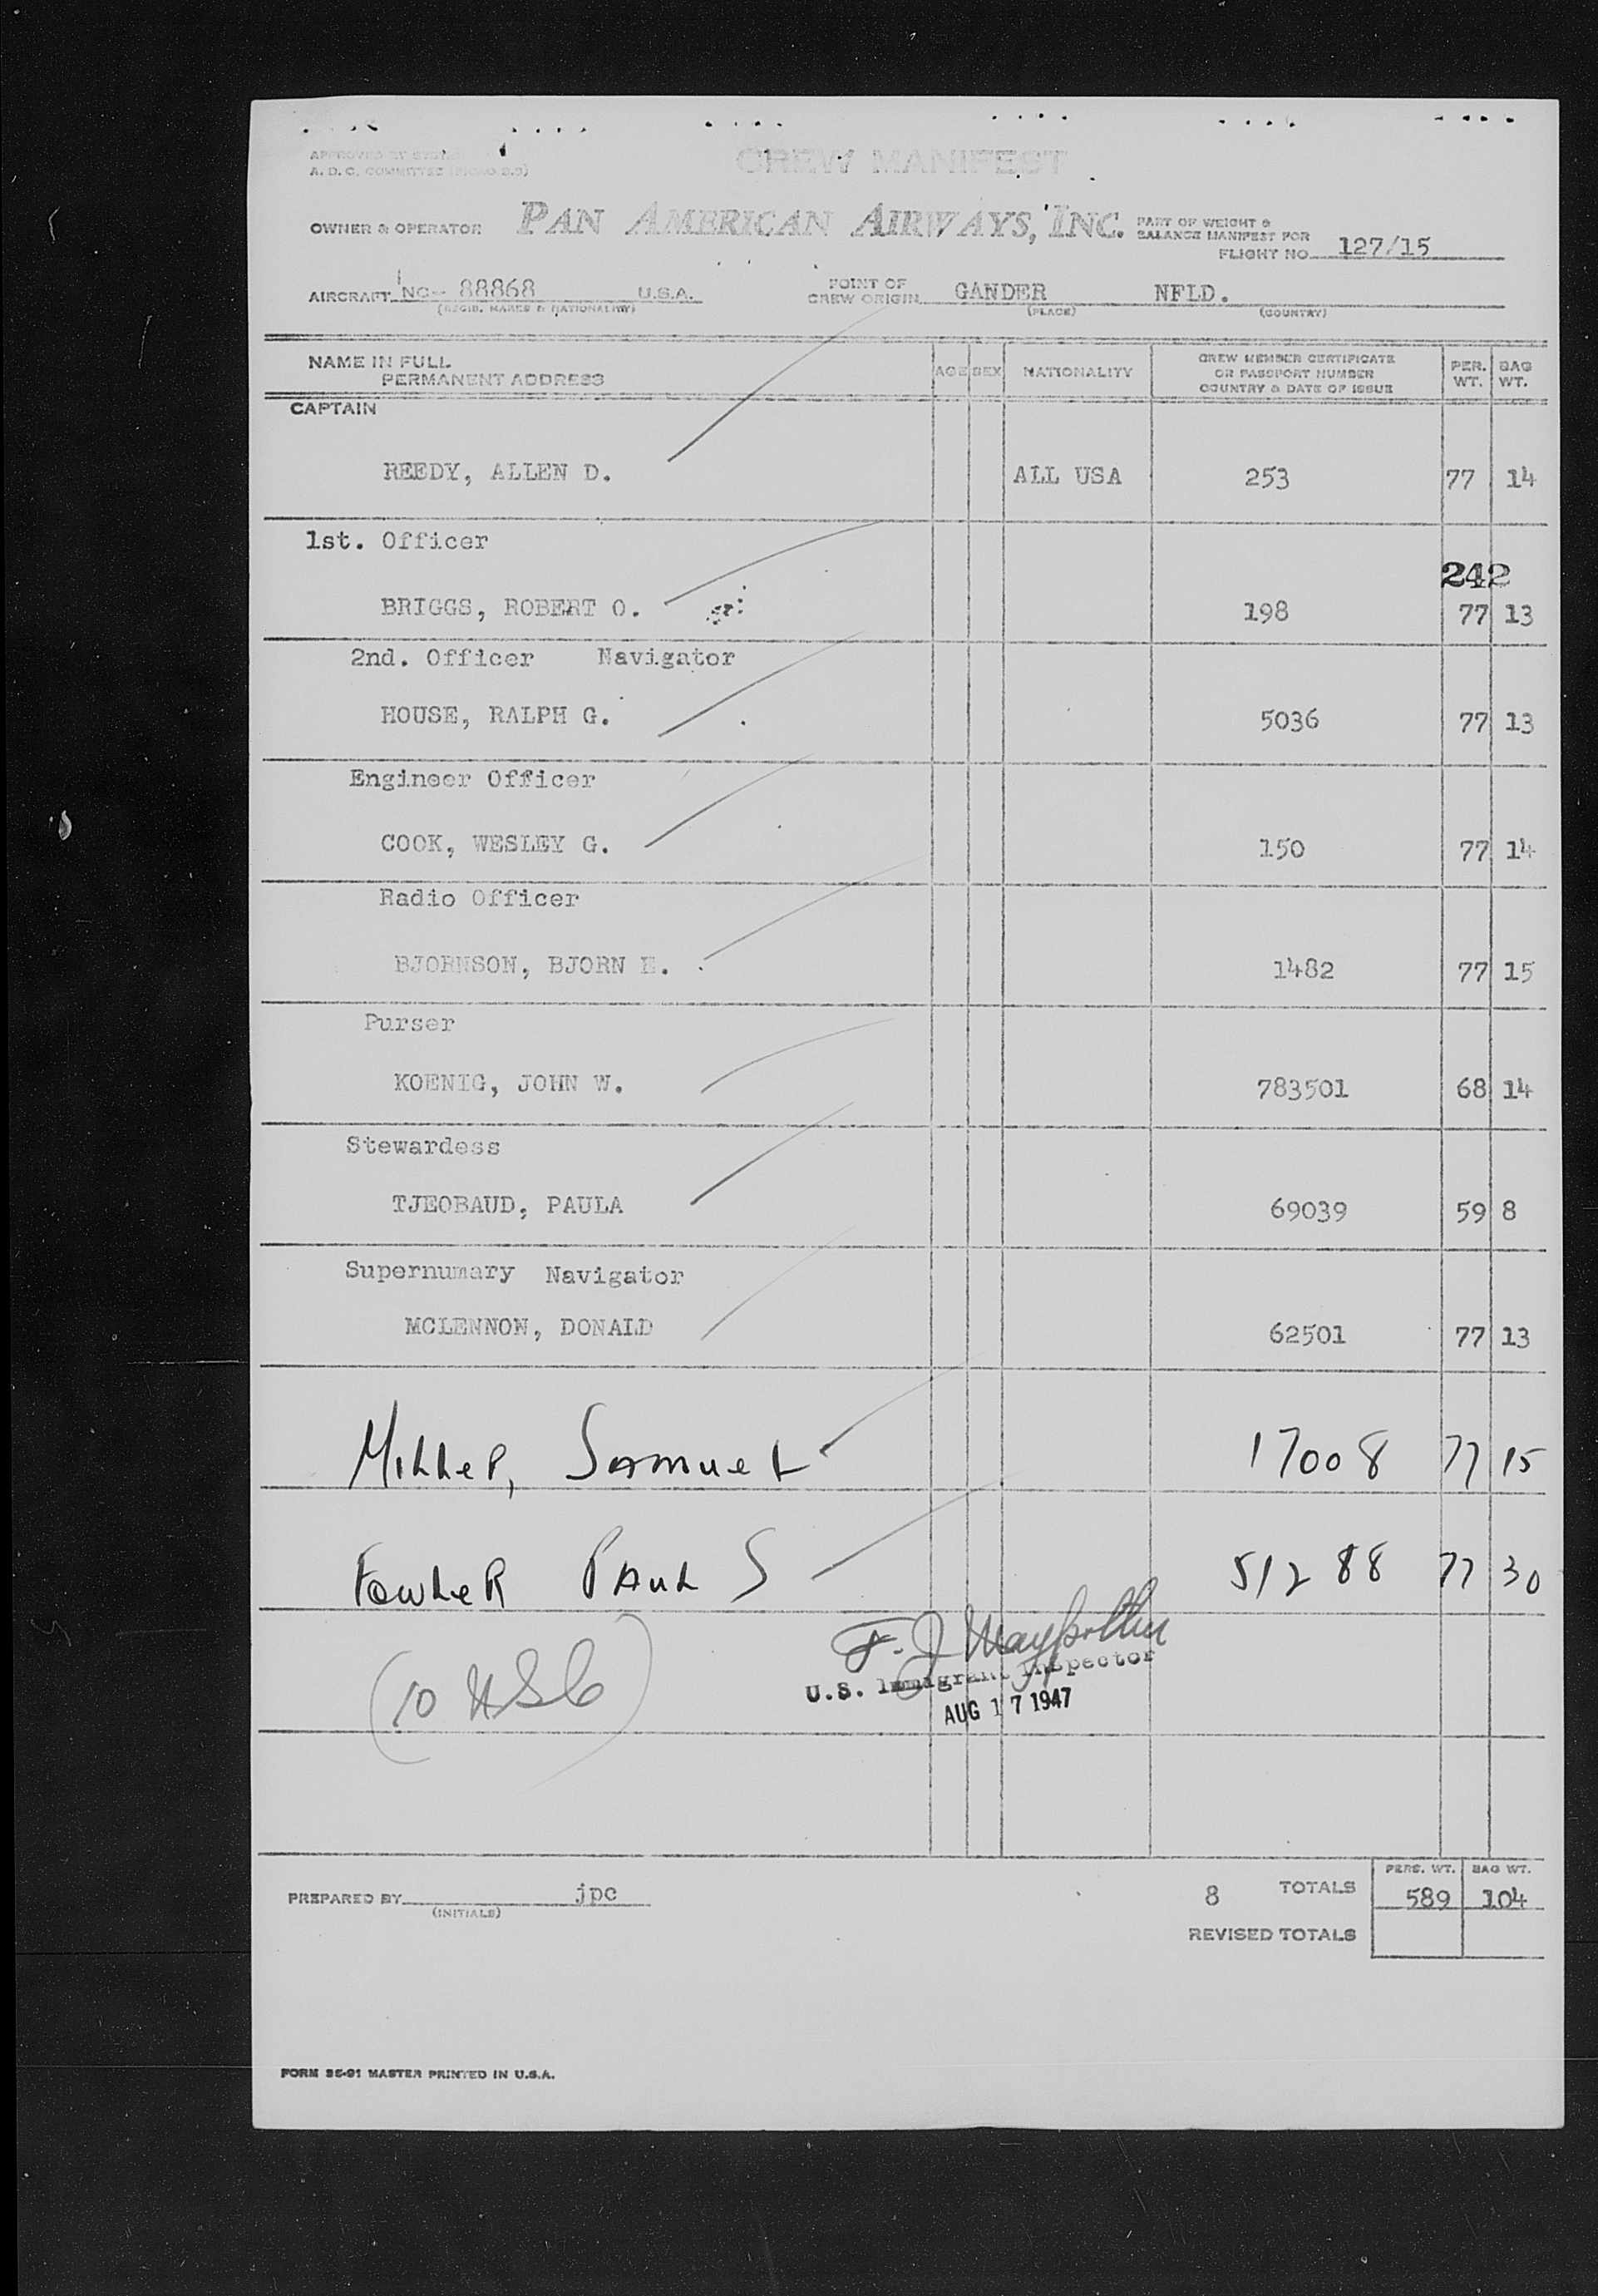 APPROVED BY
A. D. C. COMMITTEE
CREW MANIFEST
OWNER & OPERATOR PAN AMERICAN AIRWAYS, INC. PART OF WEIGHT &
BALANCE MANIFEST FOR
FLIGHT NO. 127/15
AIRCRAFT NC- 88868 U.S.A. POINT OF
CREW ORIGIN GANDER NFLD.
(REGIS. MARKS & NATIONALITY) (PLACE) (COUNTRY)
NAME IN FULL
PERMANENT ADDRESS AGE SEX NATIONALITY CREW MEMBER CERTIFICATE
OR PASSPORT NUMBER
COUNTRY & DATE OF ISSUE PER.
WT. BAG
WT.
CAPTAIN
REEDY, ALLEN D. ALL USA 253 77 14
1st. Officer
242
BRIGGS, ROBERT O. 198 77 13
2nd. Officer Navigator
HOUSE, RALPH G. 5036 77 13
Engineer Officer
COOK, WESLEY G. 150 77 14
Radio Officer
BJORNSON, BJORN E. 1482 77 15
Purser
KOENIG, JOHN W. 783501 68 14
Stewardess
TJEOBAUD, PAULA 69039 59 8
Supernumary Navigator
MCLENNON, DONALD 62501 77 13
Miller, Samuel 17008 77 15
Fowler Paul S 51288 77 30
(10 USC)
F. J.
U.S. Immigrant Inspector
AUG 17 1947
PREPARED BY jpc
(INITIALS)
8 TOTALS PERS. WT. BAG WT.
589 104
REVISED TOTALS
FORM 35-91 MASTER PRINTED IN U.S.A.